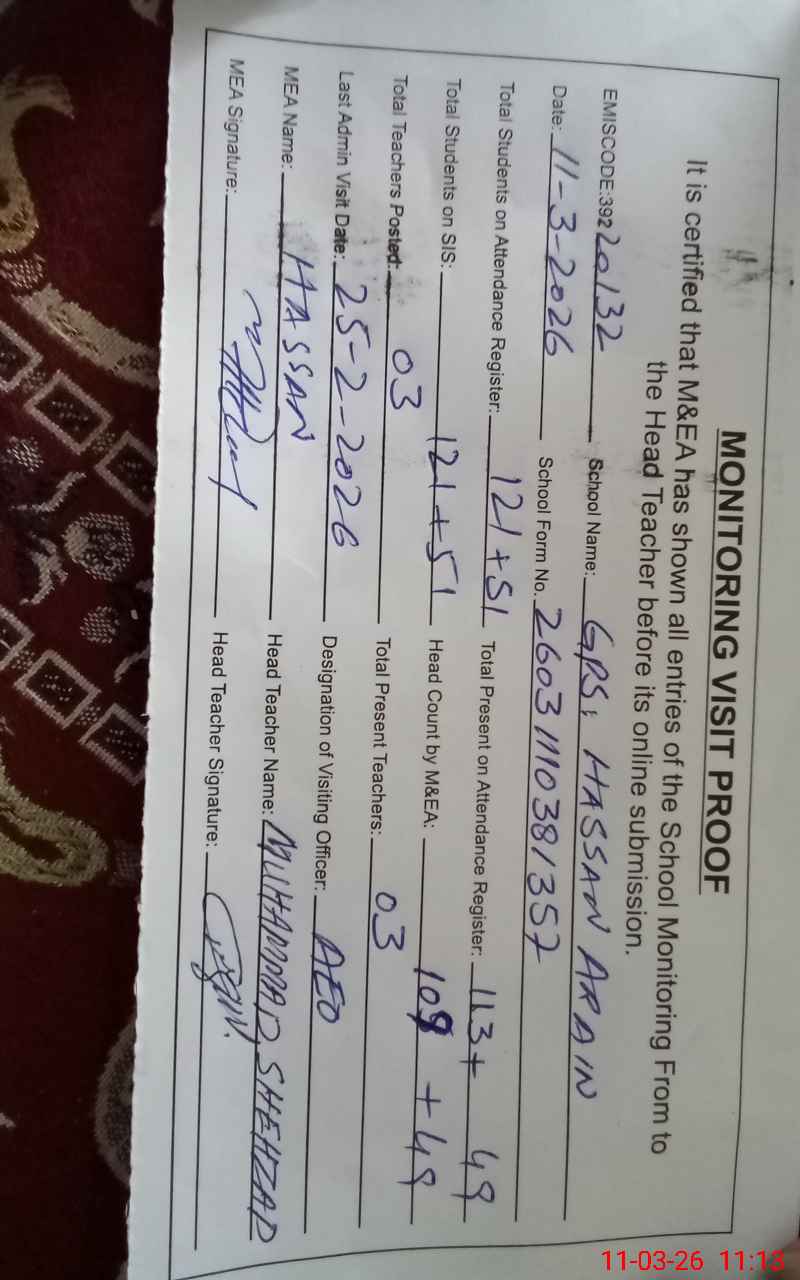 MONITORING VISIT PROOF
It is certified that M&EA has shown all entries of the School Monitoring From to
the Head Teacher before its online submission.
EMISCODE:39220132 School Name: GPS, HASSAN ARAIN
Date: 11-3-2026 School Form No. 26031110381357
Total Students on Attendance Register: 121+51 Total Present on Attendance Register: 113+ 49
Total Students on SIS: 121+51 Head Count by M&EA: 109 + 49
Total Teachers Posted: 03 Total Present Teachers: 03
Last Admin Visit Date: 25-2-2026 Designation of Visiting Officer: AEO
MEA Name: HASSAN Head Teacher Name: MUHAMMAD SHEHZAD
MEA Signature: Head Teacher Signature:
11-03-26 11:13